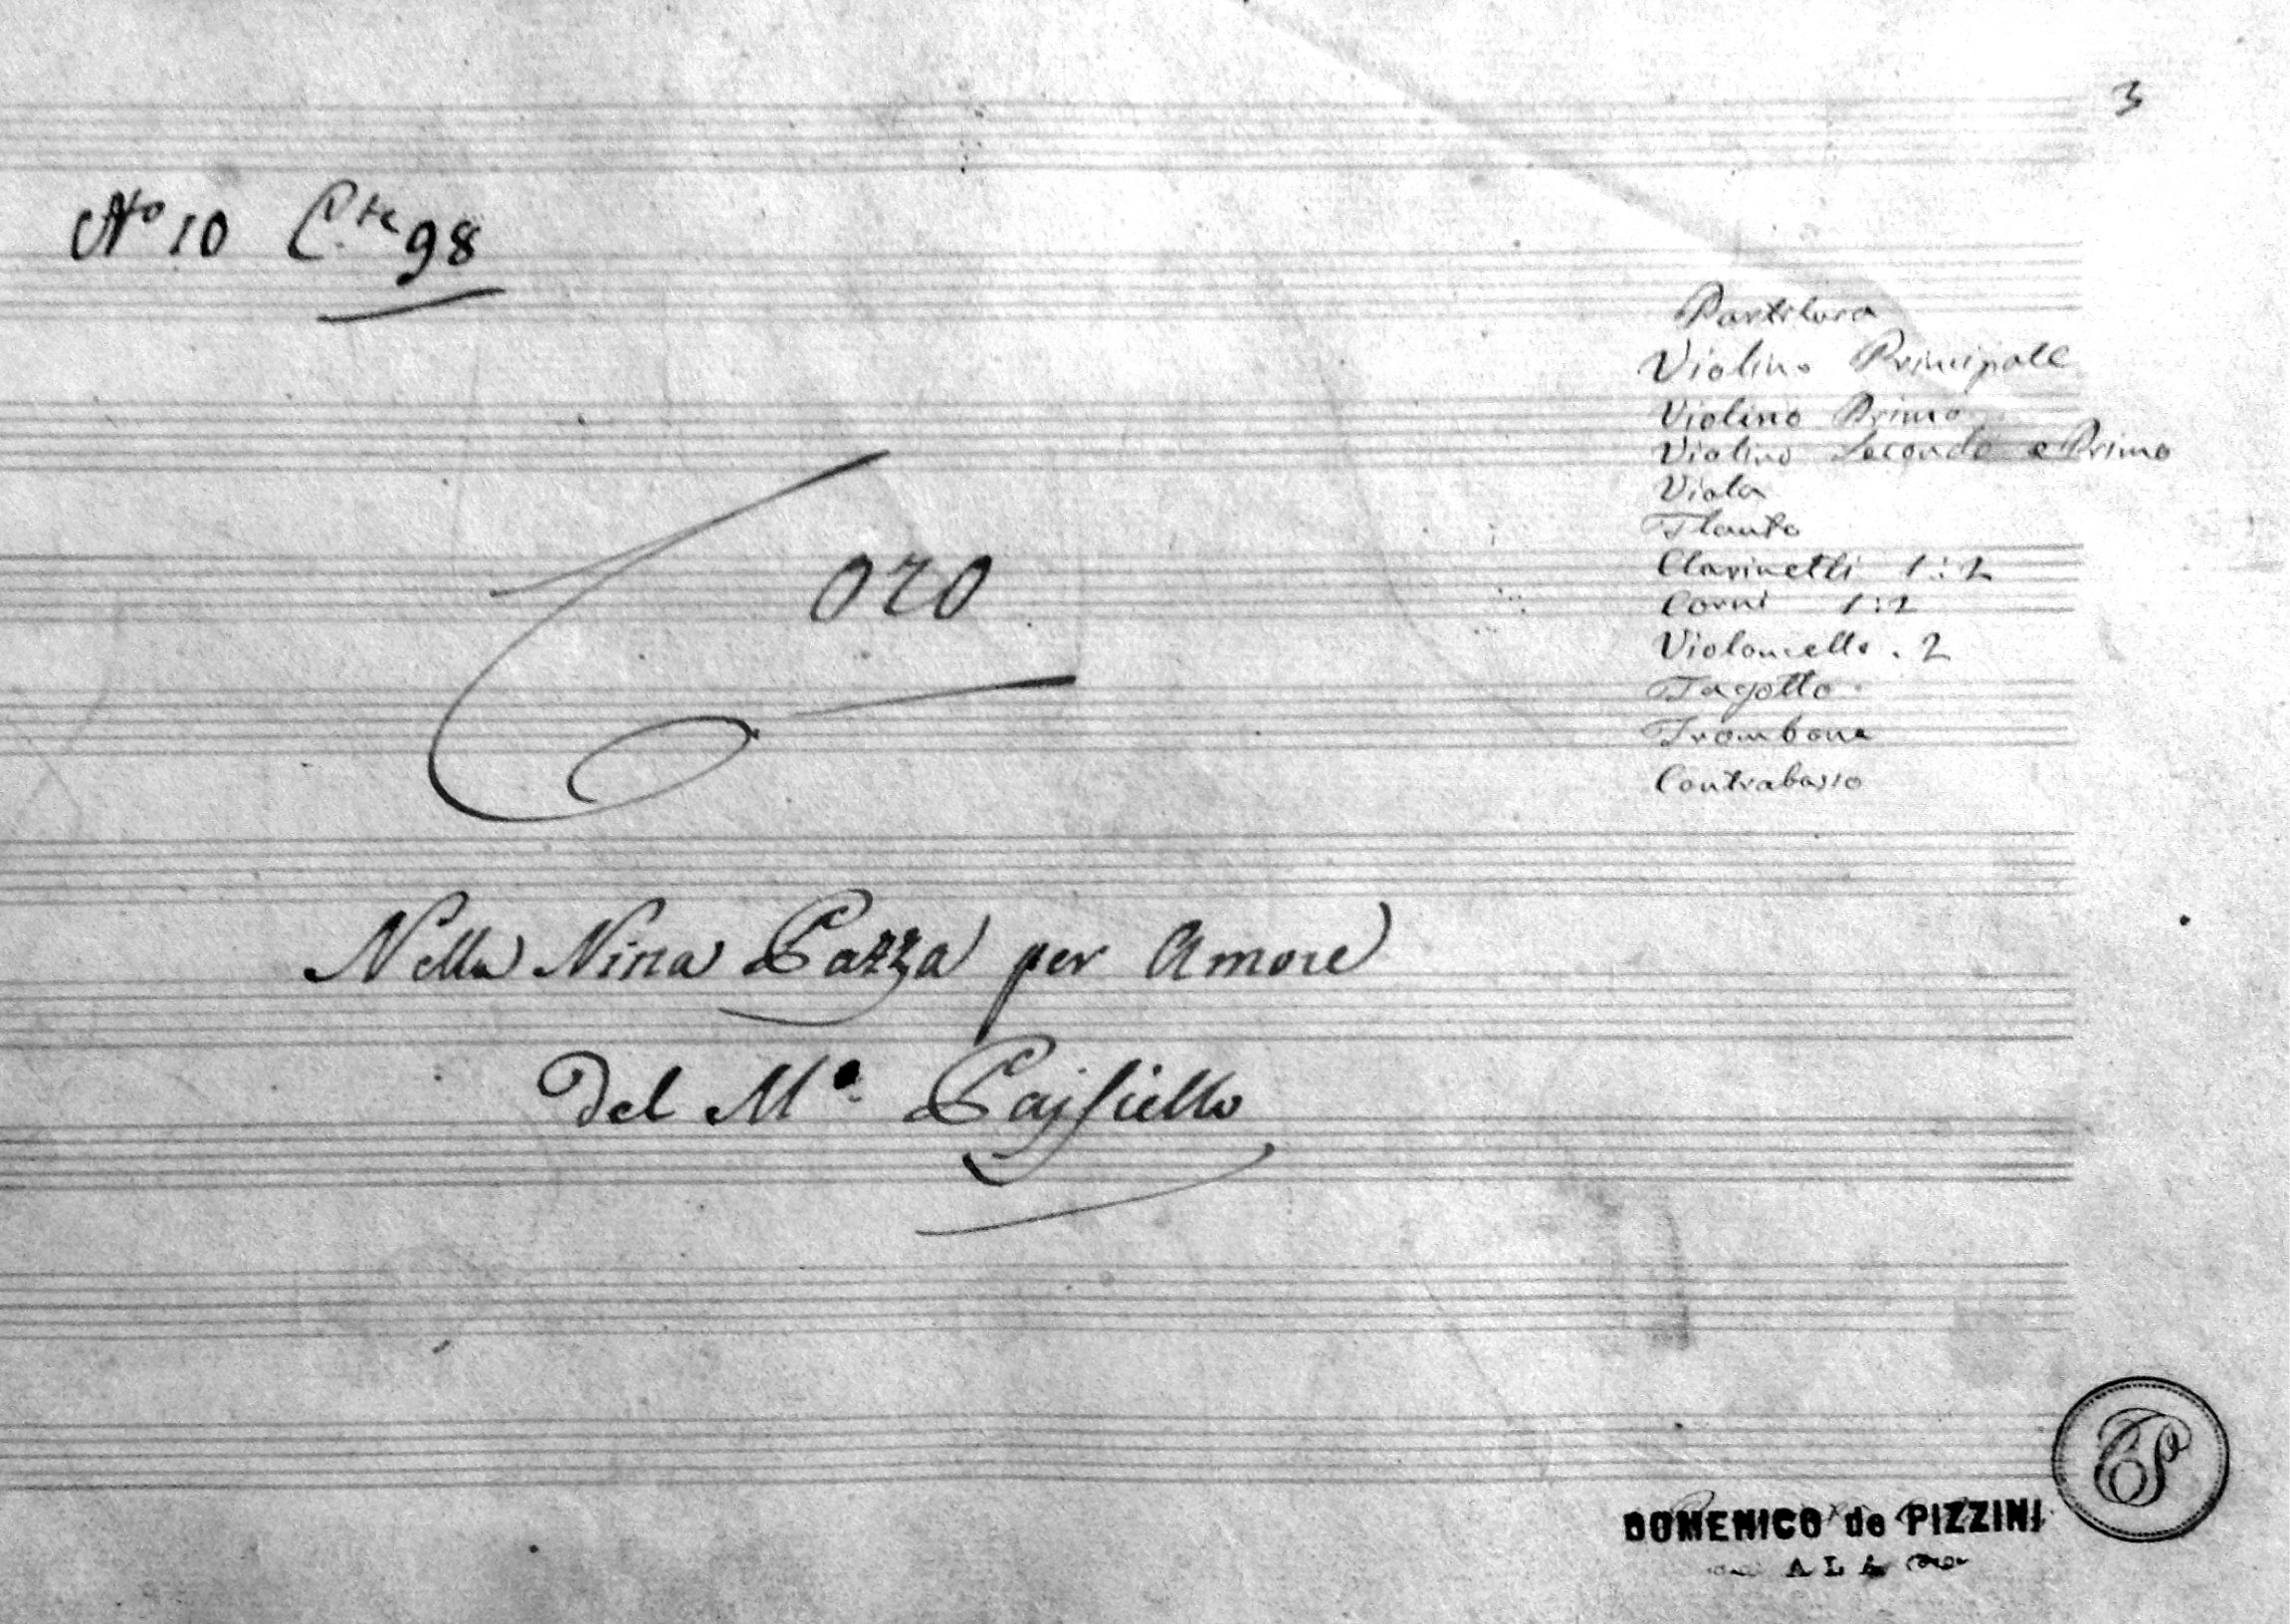 3
No 10 C.te 98
Partitura
Violino Principale
Violino Primo
Violino Secondo e Primo
Viola
Flauto
Clarinetti 1:2
Corni 1:2
Violoncello . 2
Fagotto
Trombone
Contrabasso
Coro
Nella Nina Pazza per Amore
Del Mo. Pajsiello
DOMENICO de PIZZINI
ALA